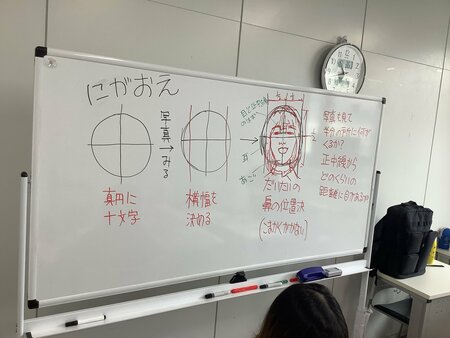 にがおえ
真円に
十文字
写真
みる
横幅を
決める
耳
あご
だいたいの
鼻の位置決
(こまかくかかない)
写真を見て
くるか?
正中線から
どのくらいの
距離に目があるか